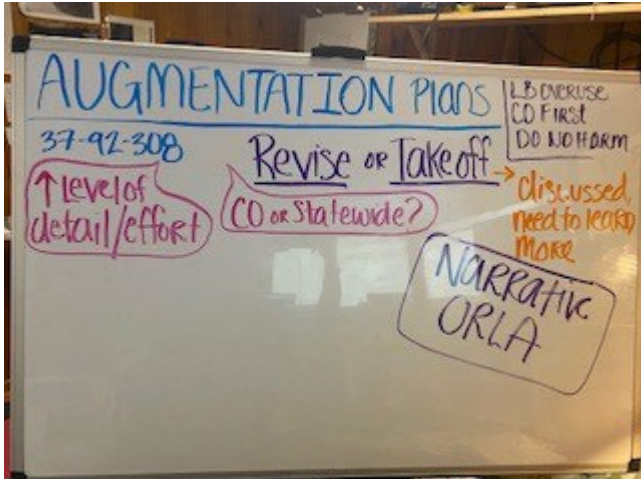 AUGMENTATION Plans
LB OVERUSE
CO FIRST
DO NO HARM
37-92-308
Revise or Take off →
↑ Level of
detail/effort
CO or Statewide?
discussed,
need to learn
more
NARRATIVE
ORLA